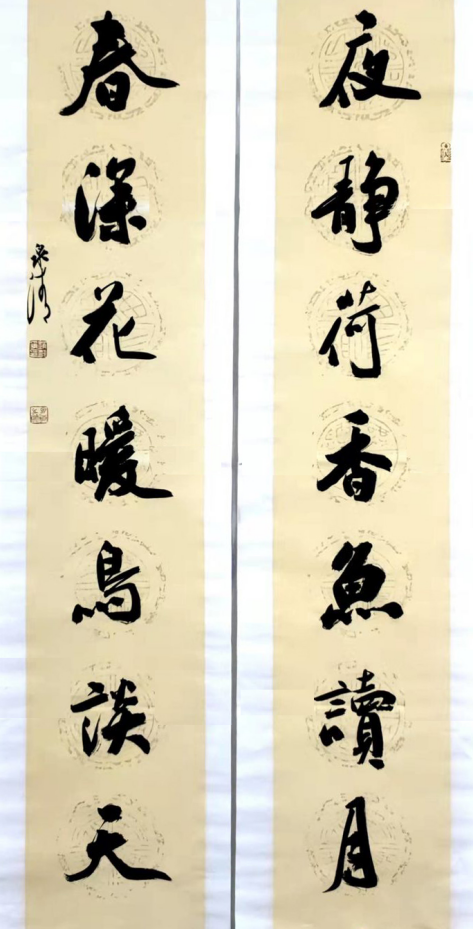 夜静荷香魚讀月
春深花暖鳥談天